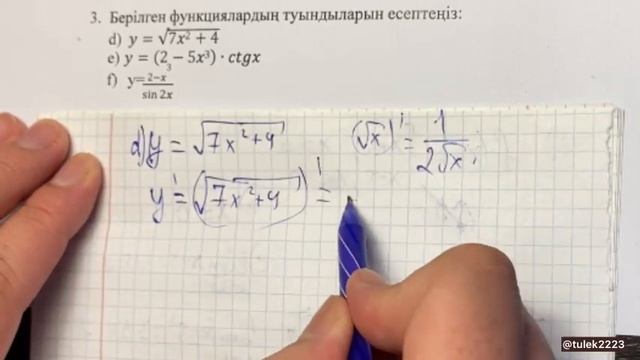 3. Берілген функциялардың туындыларын есептеңіз:
d) y = √7x² + 4
e) y = (2 – 5x³) · ctgx
f) y= 2−x / sin 2x
d) y = √7x²+4 (√x)' = 1 / 2√x ;
y' = (√7x²+4)' =
@tulek2223